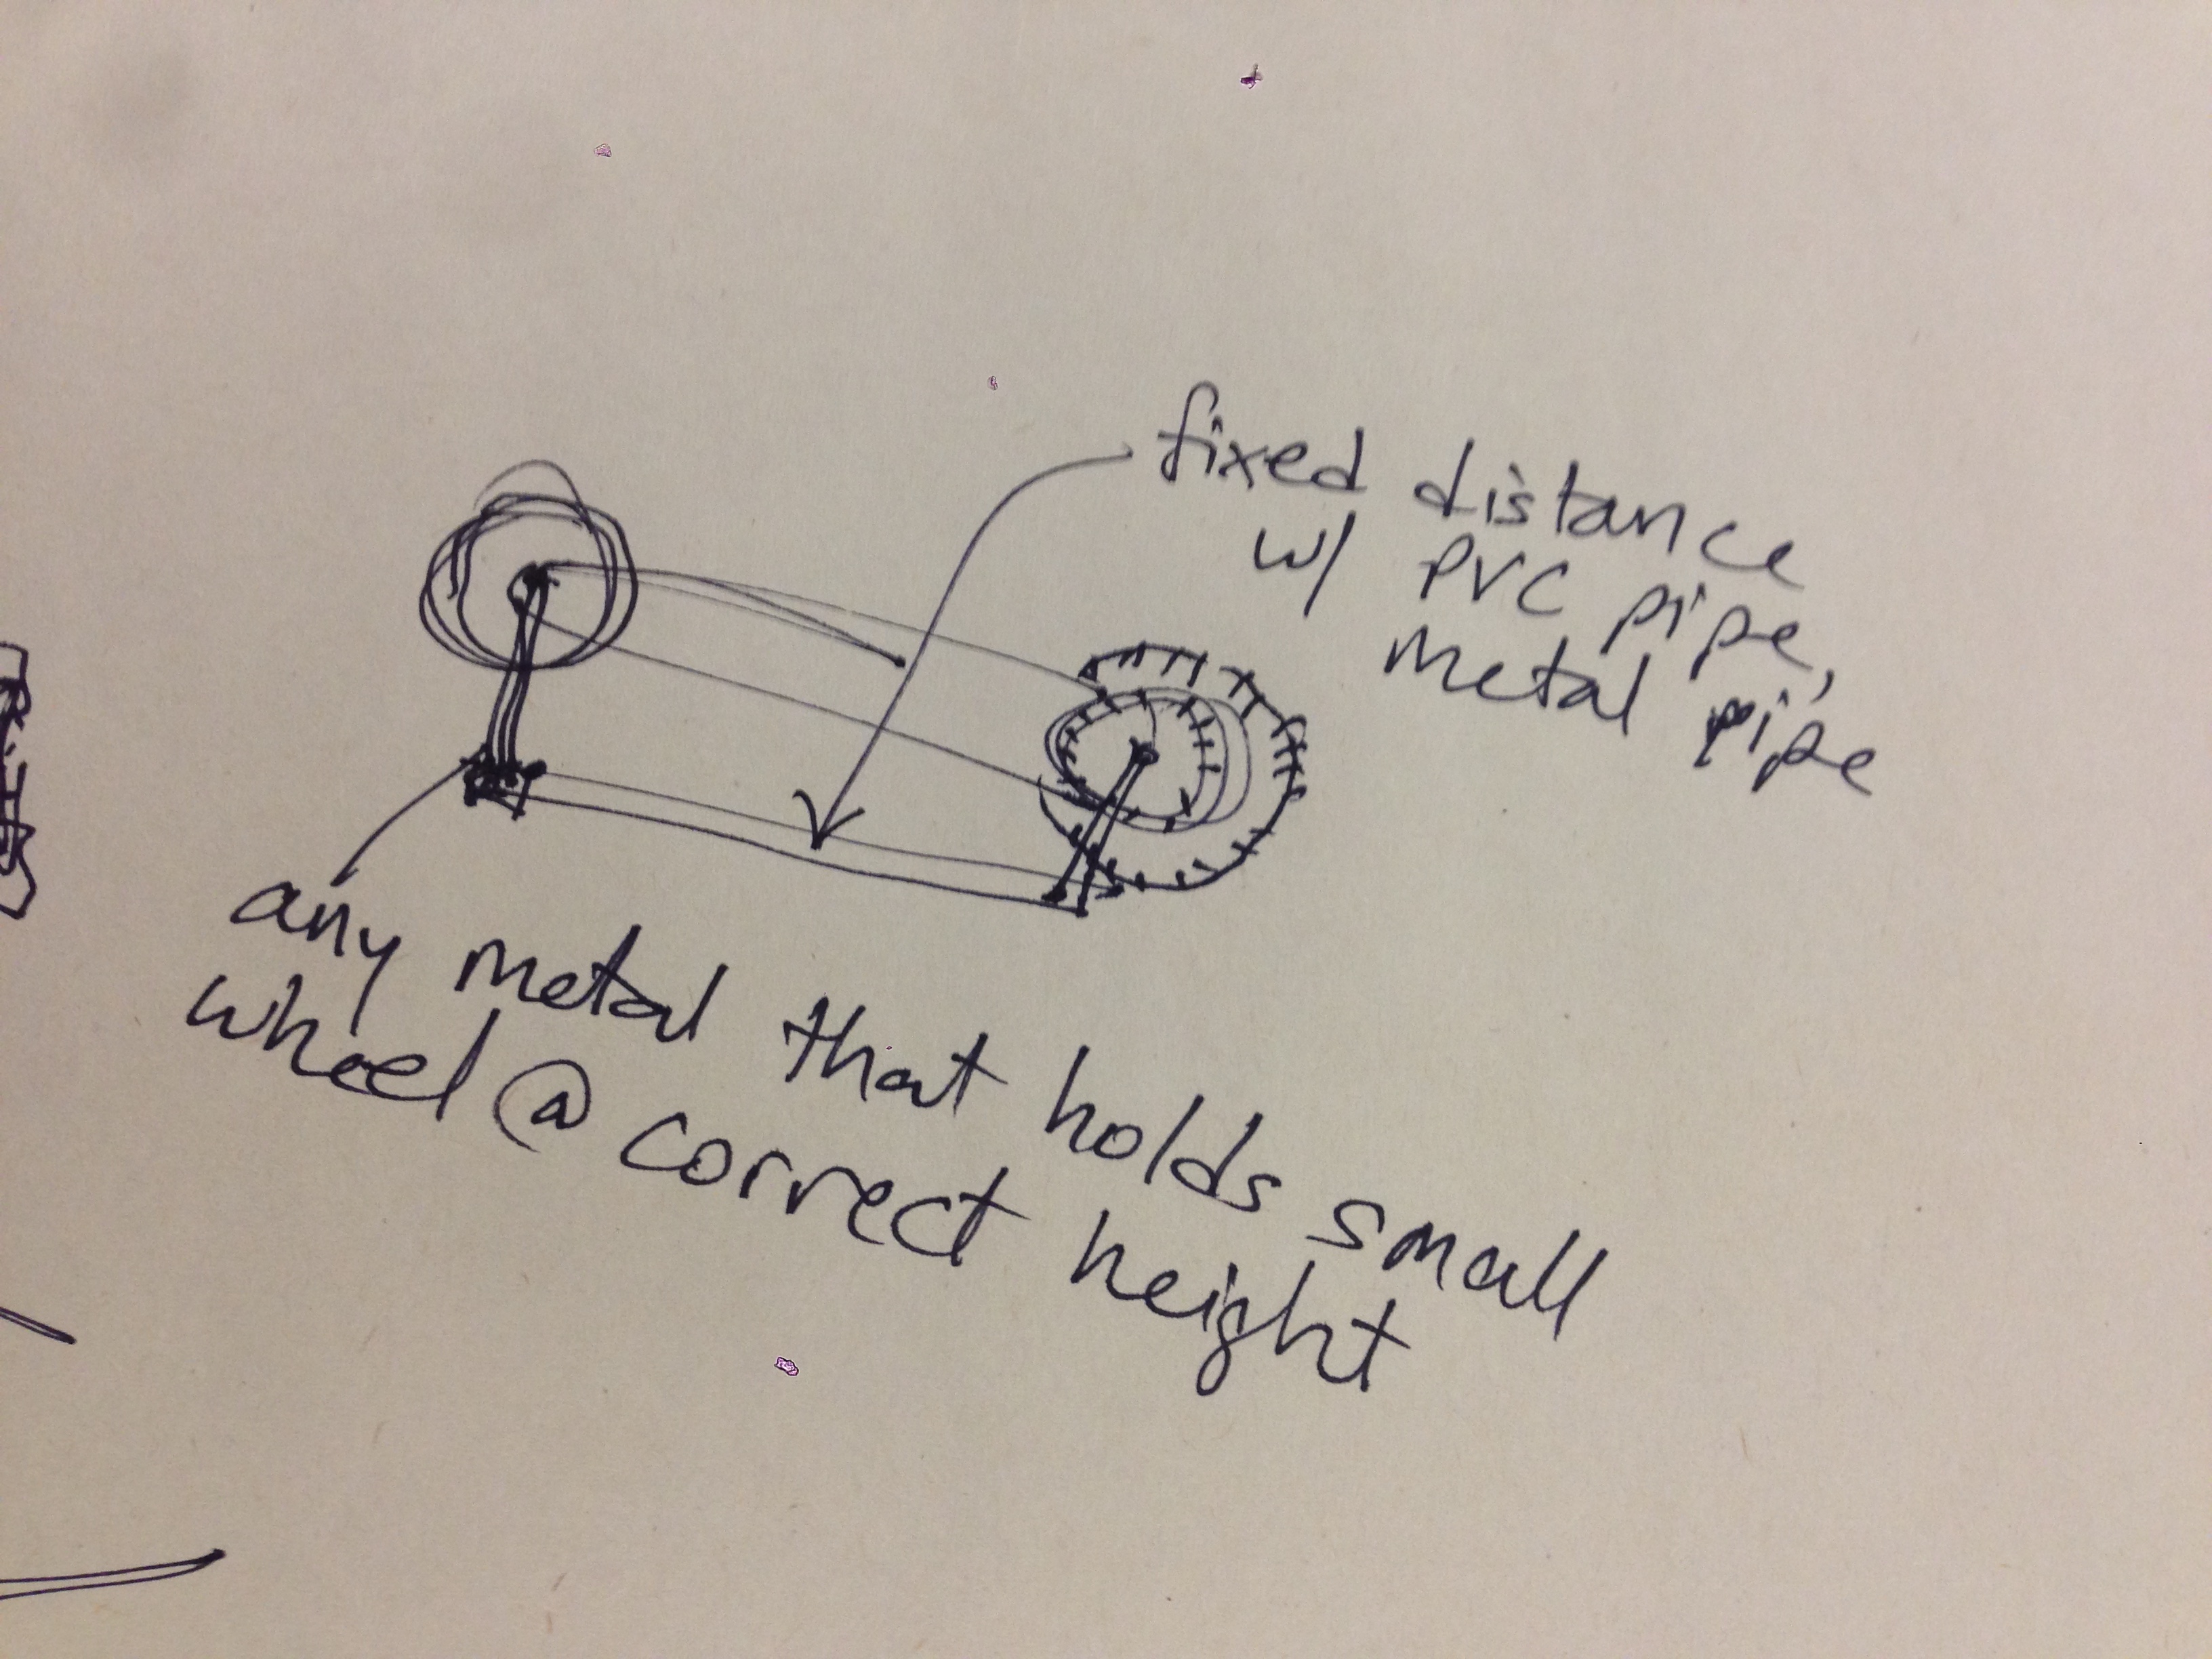 fixed distance
w/ PVC pipe,
metal pipe
any metal that holds small
wheel @ correct height